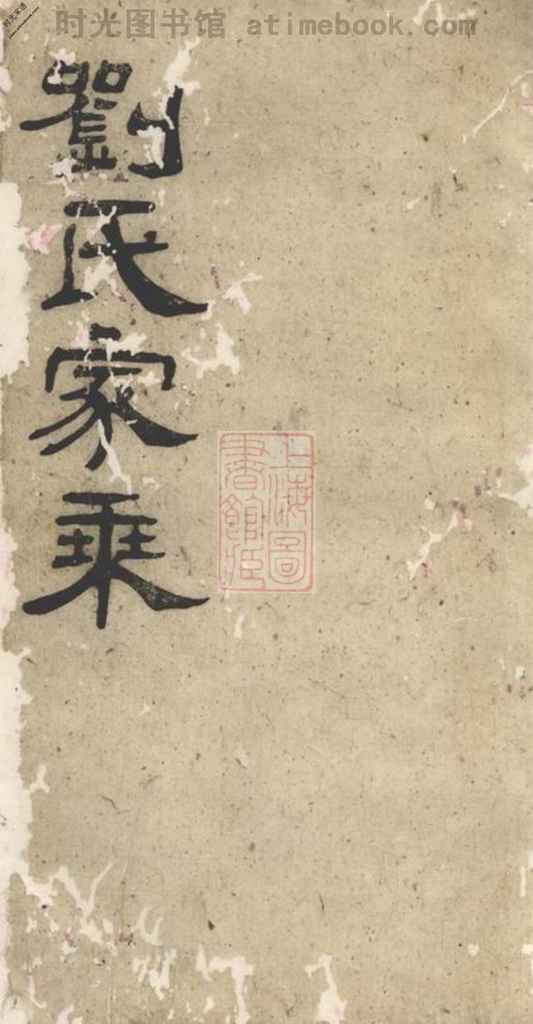 时光图书馆 atimebook.com
劉氏家乘
上海圖
書館藏